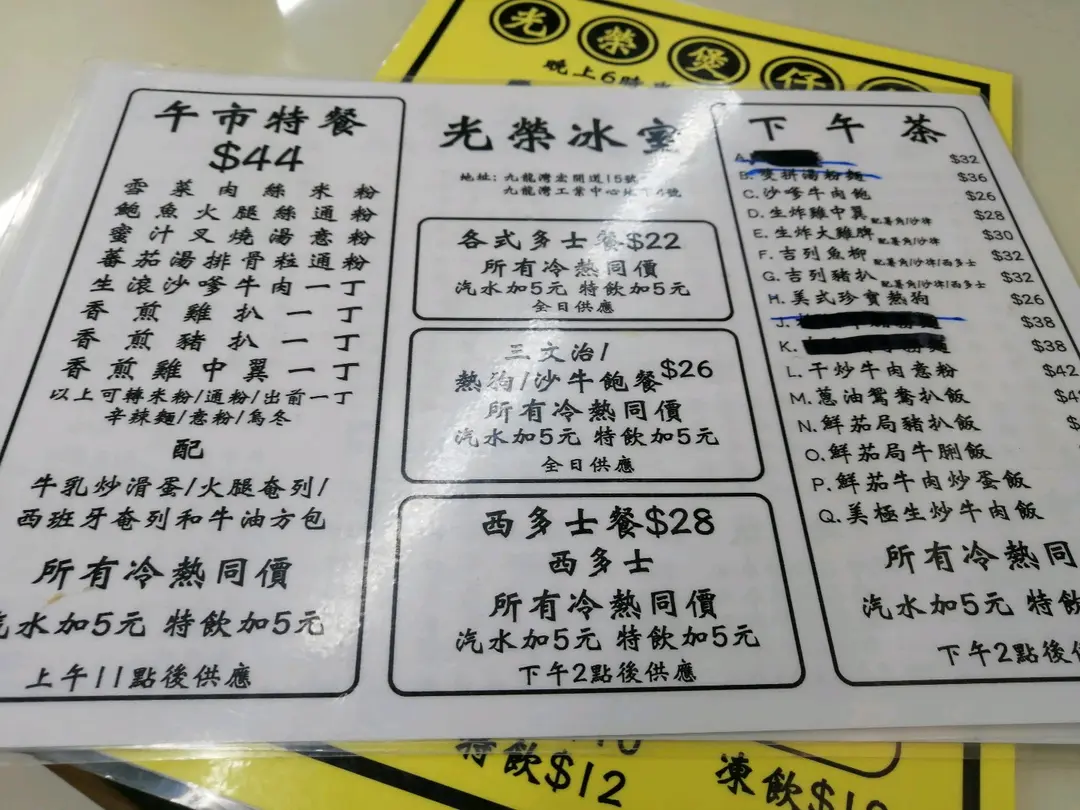 光榮煲仔
晚上6時
午市特餐
$44
雪菜肉絲米粉
鮑魚火腿絲通粉
蜜汁叉燒湯意粉
蕃茄湯排骨粒通粉
生滾沙嗲牛肉一丁
香煎雞扒一丁
香煎豬扒一丁
香煎雞中翼一丁
以上可轉米粉/通粉/出前一丁
辛辣麵/意粉/烏冬
配
牛乳炒滑蛋/火腿奄列/
西班牙奄列和牛油方包
所有冷熱同價
汽水加5元 特飲加5元
上午11點後供應
光榮冰室
地址: 九龍灣宏開道15號
九龍灣工業中心地下4號
各式多士餐$22
所有冷熱同價
汽水加5元 特飲加5元
全日供應
三文治/
熱狗/沙牛飽餐$26
所有冷熱同價
汽水加5元 特飲加5元
全日供應
西多士餐$28
西多士
所有冷熱同價
汽水加5元 特飲加5元
下午2點後供應
下午茶
A. $32
B. 雙拼湯粉麵 $36
C. 沙嗲牛肉飽 $26
D. 生炸雞中翼 配薯角/沙律 $28
E. 生炸大雞髀 配薯角/沙律 $30
F. 吉列魚柳 配薯角/沙律/西多士 $32
G. 吉列豬扒 配薯角/沙律/西多士 $32
H. 美式珍寶熱狗 $26
J. $38
K. $38
L. 干炒牛肉意粉 $42
M. 蔥油鴛鴦扒飯
N. 鮮茄局豬扒飯
O. 鮮茄局牛脷飯
P. 鮮茄牛肉炒蛋飯
Q. 美極生炒牛肉飯
所有冷熱同
汽水加5元 特飲
下午2點後
特飲$12
凍飲